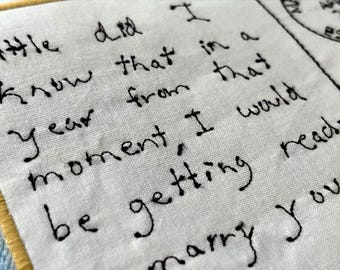 ittle did I
know that in a
year from that
moment, I would
be getting read
marry you